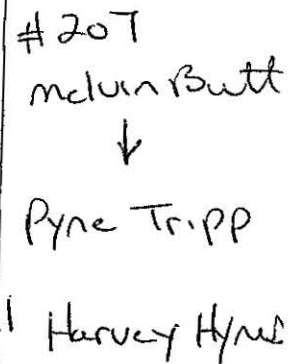 #207
Melvin Butt
↓
Pyne Tripp
Harvey Hynes